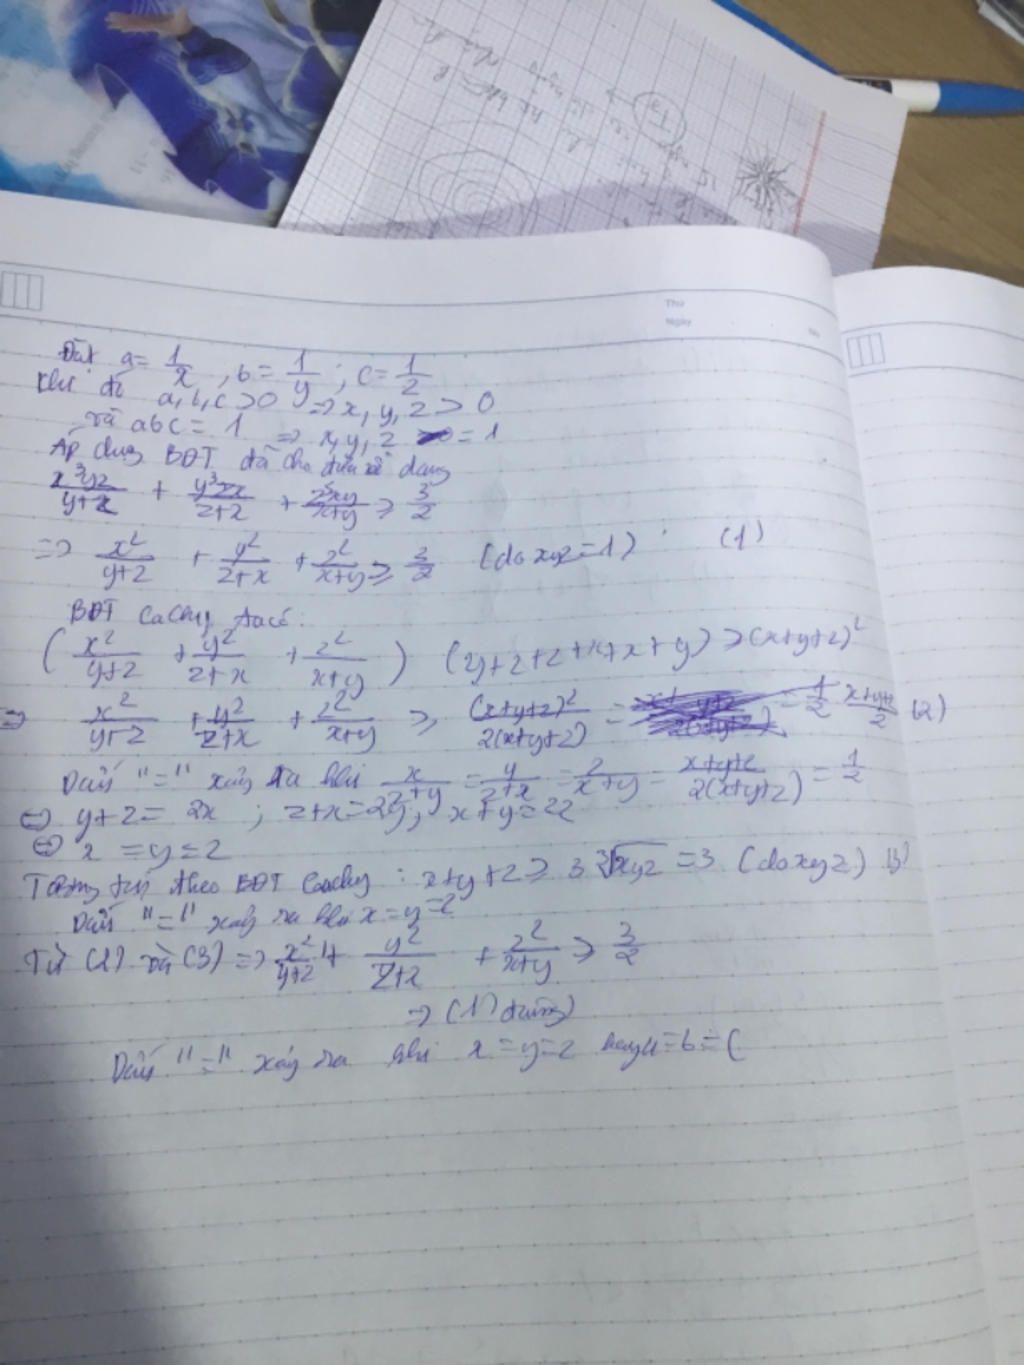 Thứ
Ngày
Đặt a = 1/x , b = 1/y ; c = 1/z
Khi đó a, b, c > 0 => x, y, z > 0
và abc = 1 => x, y, z = 1
Áp dụng BĐT đã cho đưa về dạng
x³yz/(y+z) + y³zx/(z+x) + z³xy/(x+y) ≥ 3/2
=> x²/(y+z) + y²/(z+x) + z²/(x+y) ≥ 3/2 (do xyz = 1) (1)
BĐT Cachy ta có:
( x²/(y+z) + y²/(z+x) + z²/(x+y) ) (y+z+z+x+x+y) ≥ (x+y+z)²
=> x²/(y+z) + y²/(z+x) + z²/(x+y) ≥ (x+y+z)²/2(x+y+z) = = 1/2 x+y+z/2 (2)
Dấu "=" xảy ra khi x/(z+y) = y/(z+x) = z/(x+y) = (x+y+z)/2(x+y+z) = 1/2
<=> y+z = 2x ; z+x = 2y ; x+y = 2z
<=> x = y = z
Tương tự theo BĐT Cauchy : x+y+z ≥ 3 ∛xyz = 3 (do xyz) (3)
Dấu "=" xảy ra khi x = y = z
Từ (2) và (3) => x²/(y+z) + y²/(z+x) + z²/(x+y) ≥ 3/2
=> (1) đúng)
Dấu "=" xảy ra khi x = y = z hay a = b = c